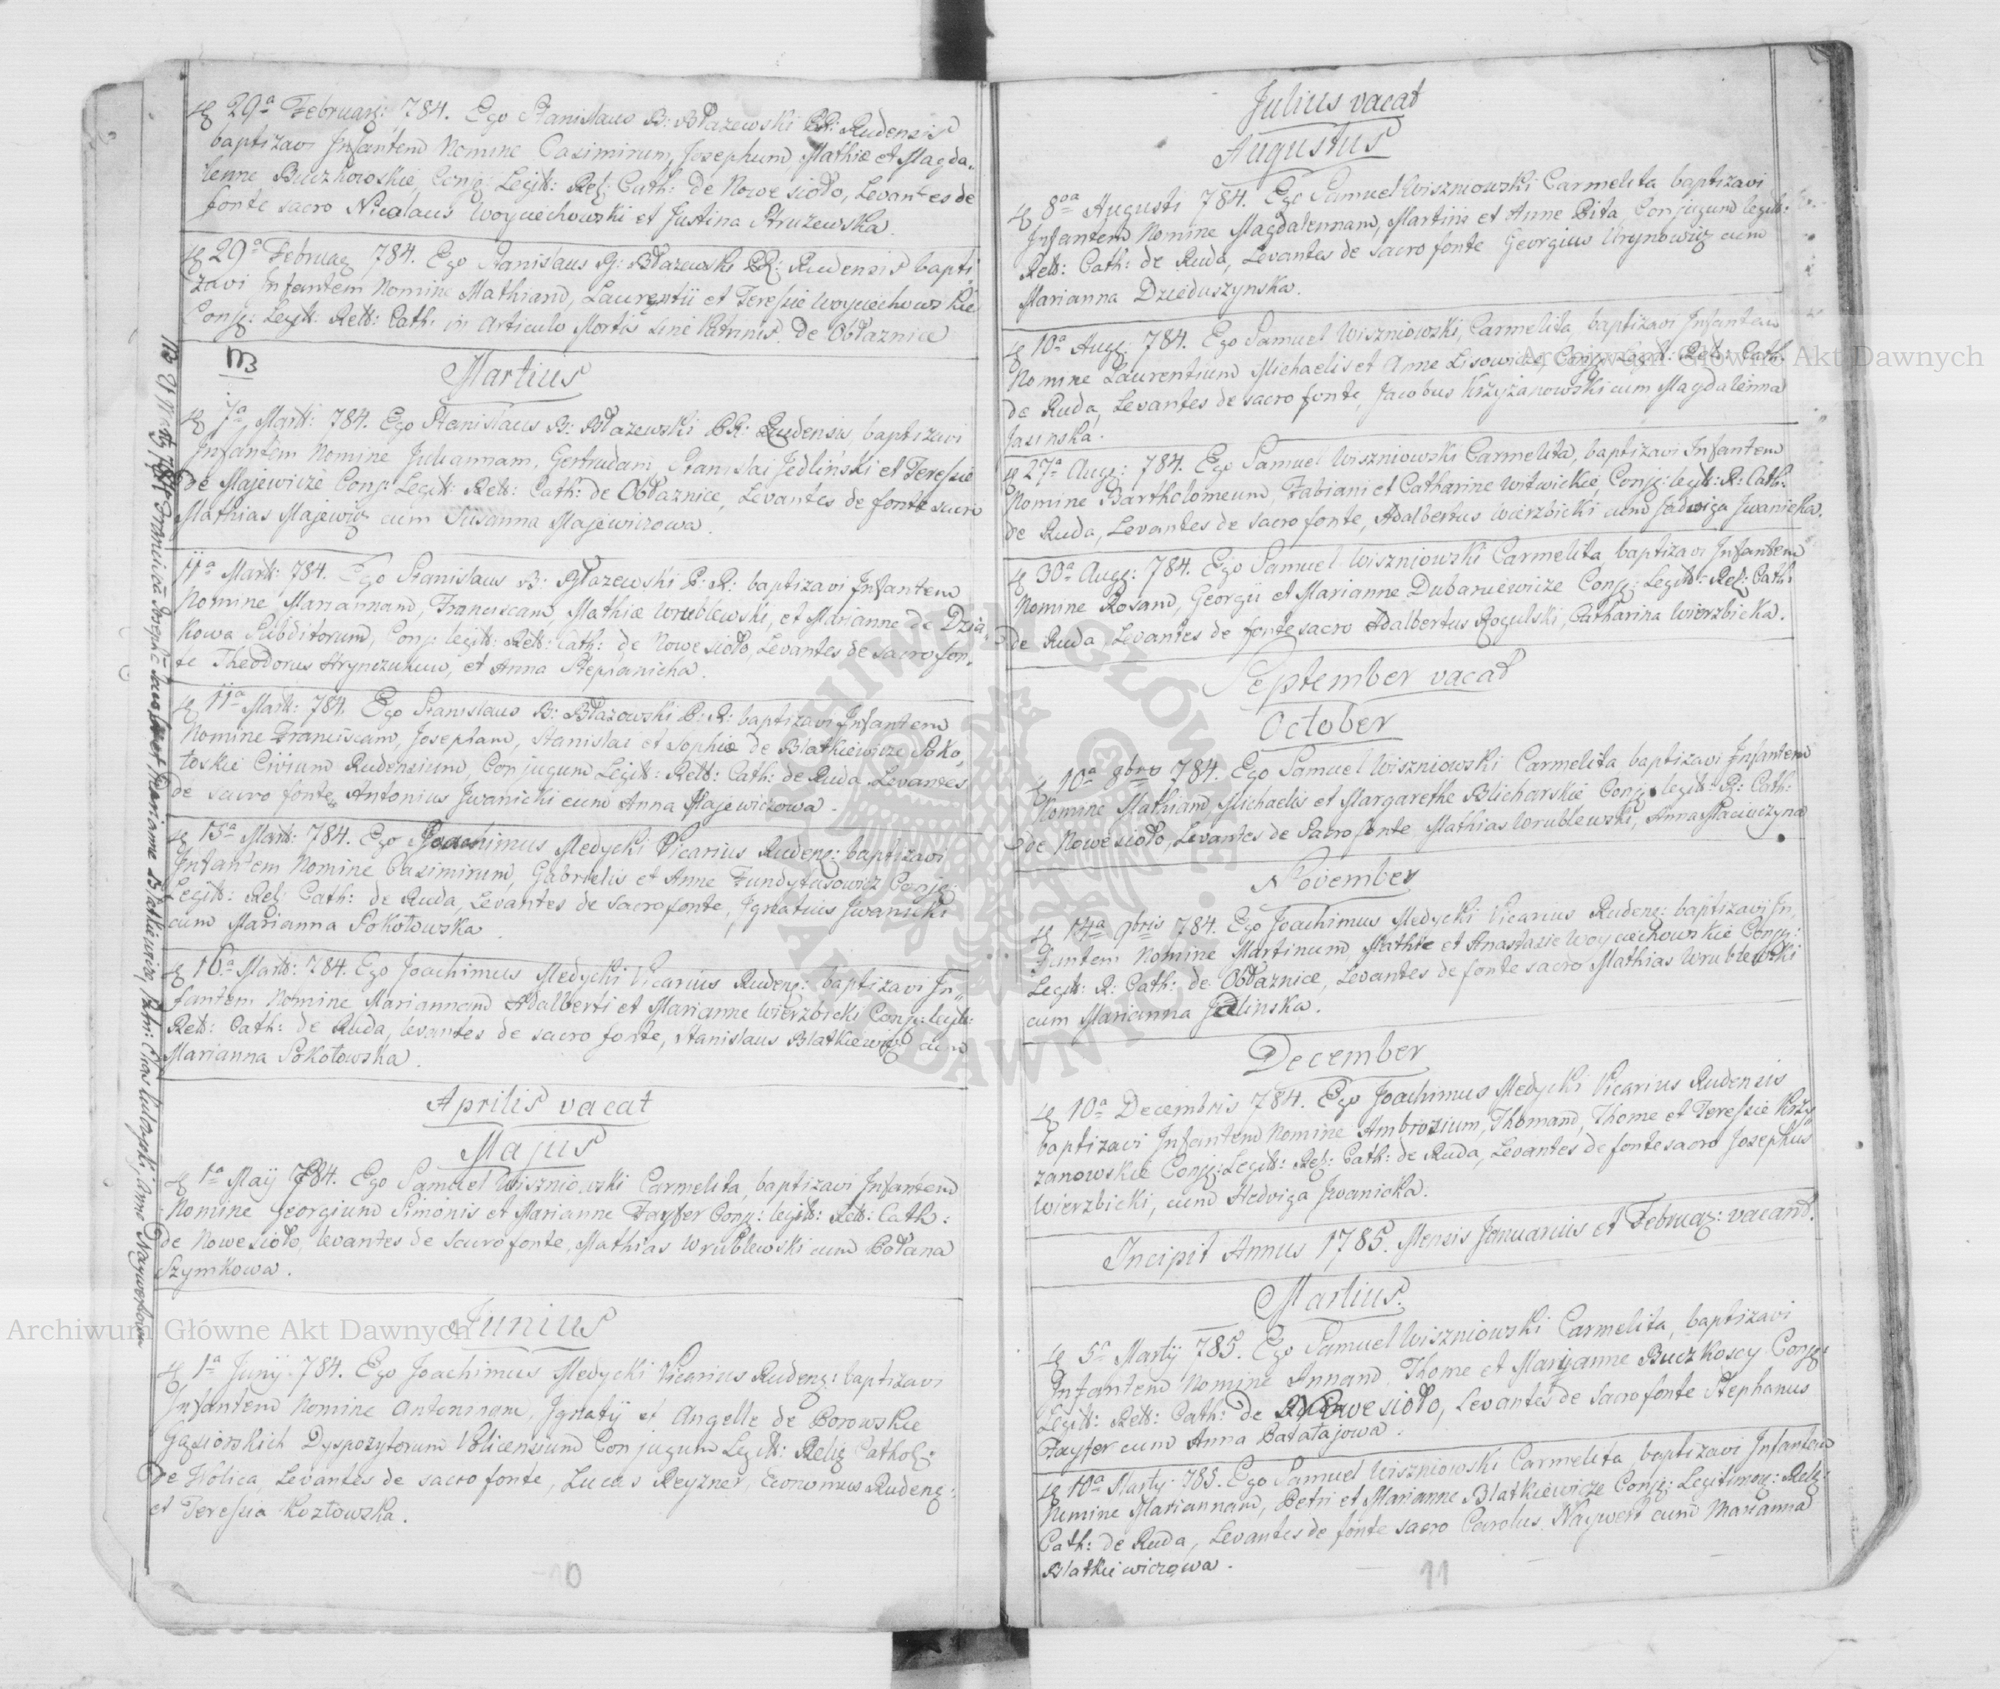 29a Februarij: 784. Ego Stanislaus B: Błazewski CR: Rudensis
baptizavi Infantem Nomine Casimirum, Josephum Mathiæ et Magda-
lenne Buczkowskie, Conj: Legit: Rel: Cath: de Nowe sioło, Levantes de
fonte sacro Nicolaus Woyciechowski et Justina Struzewska.
29a Februarij 784. Ego Stanislaus B: Błazewski CR: Rudensis bapti-
zavi Infantem Nomine Mathiam, Laurentii et Teressie Woyciechowskie
Conj: Legit: Rell: Cath: in Articulo Mortis sine Patrinis. De Obłaznice
NB
Martius
7a Marti: 784. Ego Stanislaus B: Błazewski CR: Rudensis, baptizavi
Infantem Nomine Juliannam, Gertrudam, Stanislai Jedliński et Teressie
de Majewicze Conj: Legit: Rell: Cath: de Obłaznice, Levantes de fonte sacro
Mathias Majewicz cum Susanna Majewiczowa.
11a Marti: 784. Ego Stanislaus B: Błazewski C: R: baptizavi Infantem
Nomine Mariannam, Franciscam, Mathiæ Wrublewski, et Marianne de Dzia-
kowa Subditorum, Conj: legit: Rell: Cath: de Nowesioło, Levantes de sacro fon-
te Theodorus et Anna Stephanicha.
11a Marti: 784. Ego Stanislaus B: Błazowski C: R: baptizavi Infantem
Nomine Franciscam, Josepham, Stanislai et Sophiæ de Blatkiewicze Soko-
łoskie Civium Rudensium, Conjugum Legit: Rell: Cath: de Ruda Levantes
de sacro fonte, Antonius Jwanicki cum Anna Majewiczowa.
15a Marti: 784. Ego Joachimus Medycki Vicarius Rudens: baptizavi
Infantem Nomine Casimirum, Gabrielis et Anne Fundytusowicz Conj:
Legit: Rel: Cath: de Ruda, Levantes de sacro fonte, Jgnatius Jwanicki
cum Marianna Sokołowska.
16a Marti: 784. Ego Joachimus Medycki Vicarius Rudens: baptizavi In-
fantem Nomine Mariannam Adalberti et Marianne Wierzbicki Conj: legit:
Rell: Cath: de Ruda, levantes de sacro fonte, Stanislaus Blatkiewicz cum
Marianna Sokołowska.
Aprilis vacat
Majus
1a Maij 784. Ego Samuel Wiszniowski Carmelita, baptizavi Infantem
Nomine Georgium Simonis et Marianne Fayfer Conj: legit: Rell: Cath:
de Nowesioło, levantes de sacro fonte, Mathias Wrublewski cum
Szymkowa.
Junius
1a Junij 784. Ego Joachimus Medycki Vicarius Rudens: baptizavi
Infantem Nomine Antoninam, Jgnatij et Angelle de Borowskie
Gąsiorskich Dyspozytorum Conjugum Legit: Relig Cathol:
de Holica, Levantes de sacro fonte, Lucas Reyzner, Economus Rudens:
et Teressia Kozłowska.
10
Julius vacat
Augustus
8va Augusti 784. Ego Samuel Wiszniowski Carmelita baptizavi
Infantem Nomine Magdalennam, Martini et Anne Pita, Conjugum legit:
Rell: Cath: de Ruda, Levantes de sacro fonte Georgius Urynowicz cum
Marianna Dzieduszynska.
10a Aug: 784. Ego Samuel Wiszniowski, Carmelita baptizavi Infantem
Nomine Laurentium Michaelis et Anne Lisowicze, Conj: Legit: Rell: Cath:
de Ruda, Levantes de sacro fonte, Jacobus Krzyżanowski cum Magdalenna
Jasinska.
27a Aug: 784. Ego Samuel Wiszniowski Carmelita, baptizavi Infantem
Nomine Bartholomeum, Fabiani et Catharine Witwickie, Conj: legit: R: Cath:
de Ruda, Levantes de sacro fonte, Adalbertus Wierzbicki cum Jadwiga Jwanicka.
30a Aug: 784. Ego Samuel Wiszniowski Carmelita baptizavi Infantem
Nomine Rosam, Georgii et Marianne Dubaniewicze Conj: Legit: Rel: Cath:
de Ruda, Levantes de fonte sacro Adalbertus Rogulski, Catharina Wierzbicka.
September vacat
October
10a 8bris 784. Ego Samuel Wiszniowski Carmelita baptizavi Infantem
Nomine Mathiam Michaelis et Margarethe Blicharskie Conj: legit: R: Cath:
de Nowesioło, Levantes de Sacro fonte Mathias Wrublewski, Anna Maciuczyna
November
14a 9bris 784. Ego Joachimus Medycki Vicarius Rudens: baptizavi In-
fantem Nomine Martinum, Mathie et Anastasie Woyciechowskie Conj:
Legit: R: Cath: de Obłaznice, Levantes de fonte sacro Mathias Wrublewski
cum Marianna Jalinska.
December
10a Decembris 784. Ego Joachimus Medycki Vicarius Rudensis
baptizavi Infantem Nomine Ambrosium, Thomam, Thome et Teressie Krzy-
zanowskie Conj: Legit: Rel: Cath: de Ruda, Levantes de fonte sacro Josephus
Wierzbicki, cum Hedviga Jwanicka.
Incipit Annus 1785. Mensis Januarius et Februar: vacant.
Martius.
5a Martij 785. Ego Samuel Wiszniowski Carmelita, baptizavi
Infantem Nomine Annam, Thome et Maryanne Buczkoscy Conj:
Legit: Rell: Cath: de Nowesioło, Levantes de Sacro fonte Stephanus
Fayfer cum Anna Batałajowa.
10a Martij 785. Ego Samuel Wiszniowski Carmelita, baptizavi Infantem
Nomine Mariannam, Petri et Marianne Blatkiewicze Conj: Legitimor: Relg:
Cath: de Ruda, Levantes de fonte sacro Carolus Naywert cum Marianna
Blatkiewiczowa.
11
Archiwum Główne Akt Dawnych
Archiwum Główne Akt Dawnych
ARCHIWUM GŁÓWNE AKT DAWNYCH